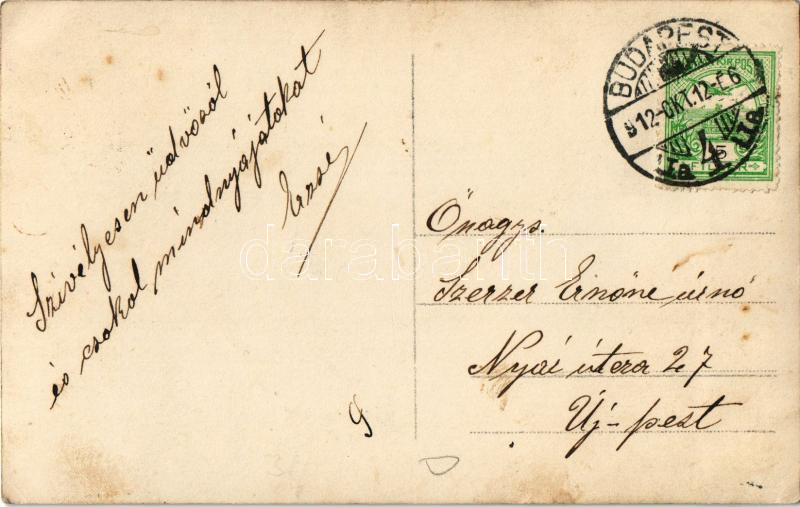 Szívélyesen üdvözöl
és csokol mindnyájatokat
Erzsi
9
BUDAPEST
912-OKT.12-E6
4
5
Önagys.
Szerzer Ernőné úrnő
Nyár útcza 27
Új-pest
darabanth